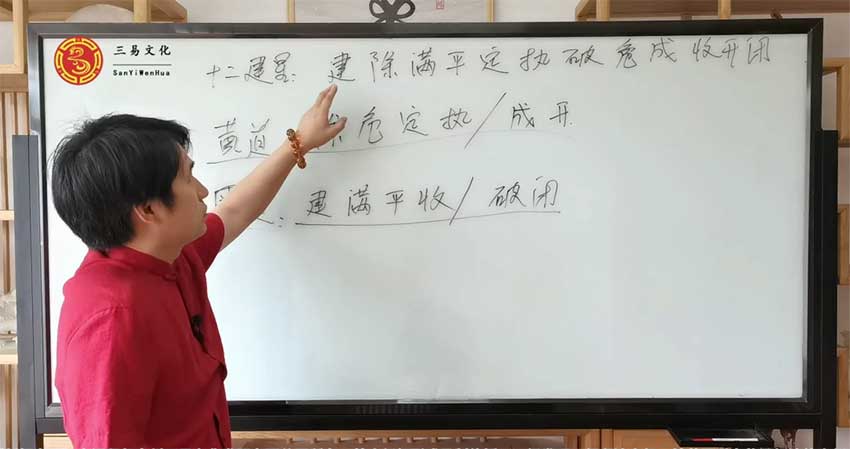 三易文化
SanYiWenHua
十二建星：建除满平定执破危成收开闭
黄道 危定执/成开
建满平收/破闭